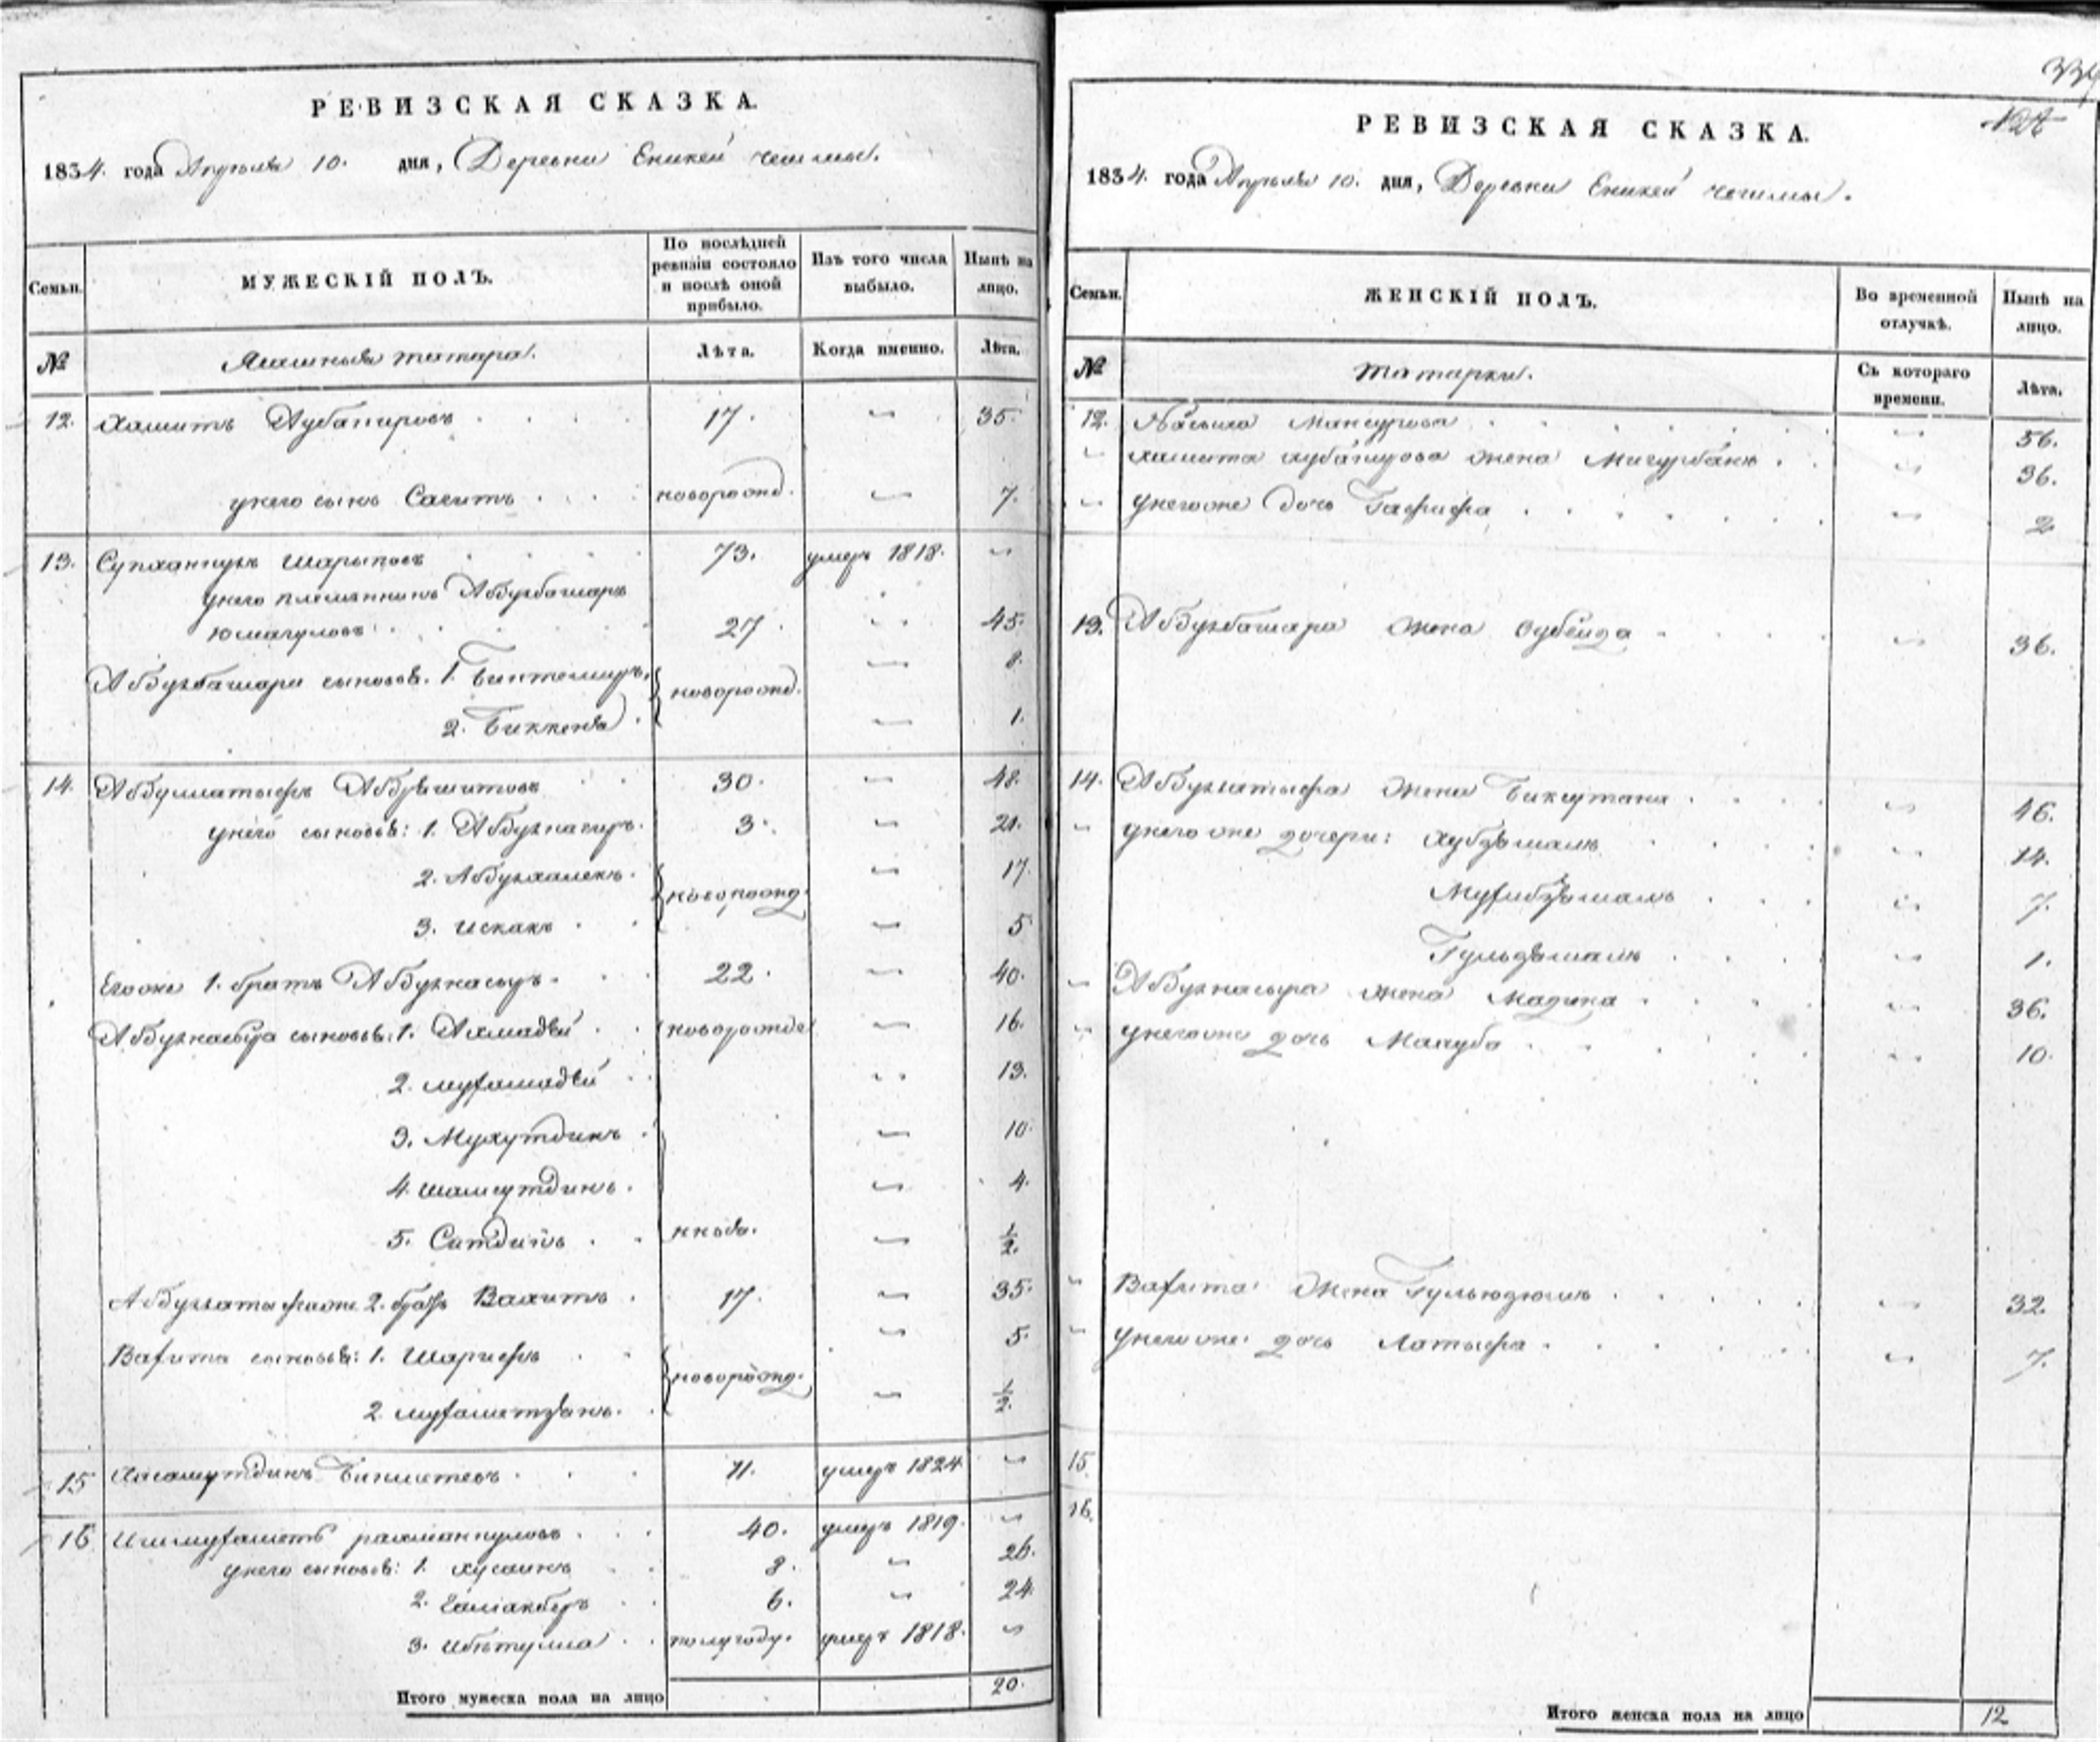 РЕВИЗСКАЯ СКАЗКА.
1834. года Апреля 10. дня, Деревни Еникей Чешмы.
Семьи.
МУЖЕСКІЙ ПОЛЪ.
По послѣдней ревизіи состояло и послѣ оной прибыло.
Изъ того числа выбыло.
Нынѣ на лицо.
№
Ясашныя татара.
Лѣта.
Когда именно.
Лѣта.
12. Хамитъ Аубакировъ 17. 35.
у него сынъ Сагитъ новорожд. 7.
13. Супханкулъ Шарыповъ 73. умеръ 1818.
у него племянникъ Абдулбашаръ
Юмагуловъ 27 45.
Абдулбашара сыновья. 1. Биктемиръ новорожд. 8.
2. Биккеня 1.
14. Абдуллатыфъ Абдряшитовъ 30. 48.
у него сыновья: 1. Абдулнасиръ 3. 21.
2. Абдулхаликъ новорожд. 17.
3. Искакъ 5
Его же 1. братъ Абдулнасыръ 22. 40.
Абдулнасыра сыновья: 1. Ахмадѣй новорожде 16.
2. Мухамадѣй 13.
3. Мухутдинъ 10
4. Шамсутдинъ. 4.
5. Ситдикъ нныя. ½.
Абдуллатыфа же 2. братъ Вахитъ 17. 35.
Вахита сыновья: 1. Шарифъ новорожд. 5.
2. Мухаметзянъ. ½.
15 Хисамутдинъ Бикметевъ 71. умеръ 1824
16 Ишмухаметъ Рахманкуловъ 40. умеръ 1819.
у него сыновья: 1. Хусаинъ 8. 26.
2. Галіакберъ 6. 24.
3. полугоду. умеръ 1818.
Итого мужеска пола на лицо 20.
334
РЕВИЗСКАЯ СКАЗКА.
1834. года Апреля 10. дня, Деревни Еникей Чешмы.
Семьи.
ЖЕНСКІЙ ПОЛЪ.
Во временной отлучкѣ.
Нынѣ на лицо.
№
Татарки.
Съ котораго времени.
Лѣта.
12. Мансурова 56.
Хамита Аубакирова жена Мигурбанъ 36.
у него же дочь Гафифа 2
13. Абдулбашара жена Зубейда 36.
14. Абдуллатыфа жена Биксултана 46.
у него же дочери: Хубзямалъ 14.
Мухибзямалъ 7.
Гульзямалъ 1.
Абдулнасыра жена Мадина 36.
у него же дочь Махуба 10.
Вахита жена Гульюзюмъ 32.
у него же дочь Латыфа 7.
15.
16.
Итого женска пола на лицо 12